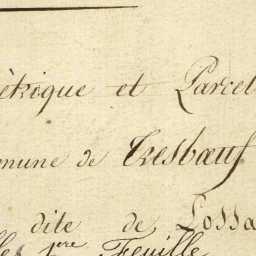 étrique et Parcel
mmune de Tresbœuf
dite de Lossa
lle 1ère Feuille